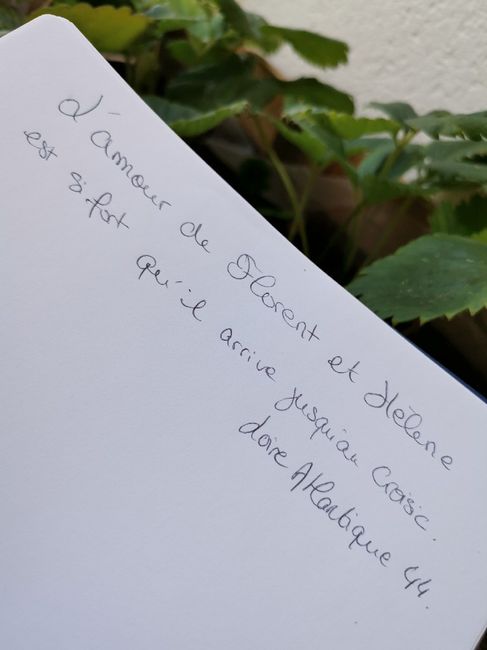 L'amour de Florent et Hélène
est si fort qu'il arrive jusqu'au Croisic.
Loire Atlantique 44.